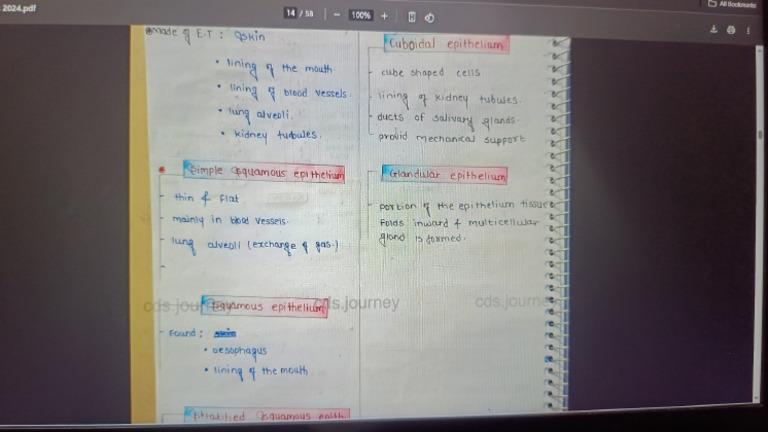 2024.pdf
14 / 58
100%
All Bookmarks
made of E.T : Skin
• lining of the mouth
• lining of blood vessels.
• lung alveoli.
• kidney tubules.
Simple Squamous epithelium
- thin & flat
- mainly in blood vessels.
- lung alveoli (exchange of gas.)
-
Squamous epithelium
- Found : skin
• oesophagus
• lining of the mouth
Stratified Squamous epith.
Cuboidal epithelium
- cube shaped cells
- lining of kidney tubules.
- ducts of salivary glands.
- provid mechanical support
Glandular epithelium
- portion of the epithelium tissue
Folds inward & multicellular
gland is formed.
cds.journey
cds.journey
cds.journey